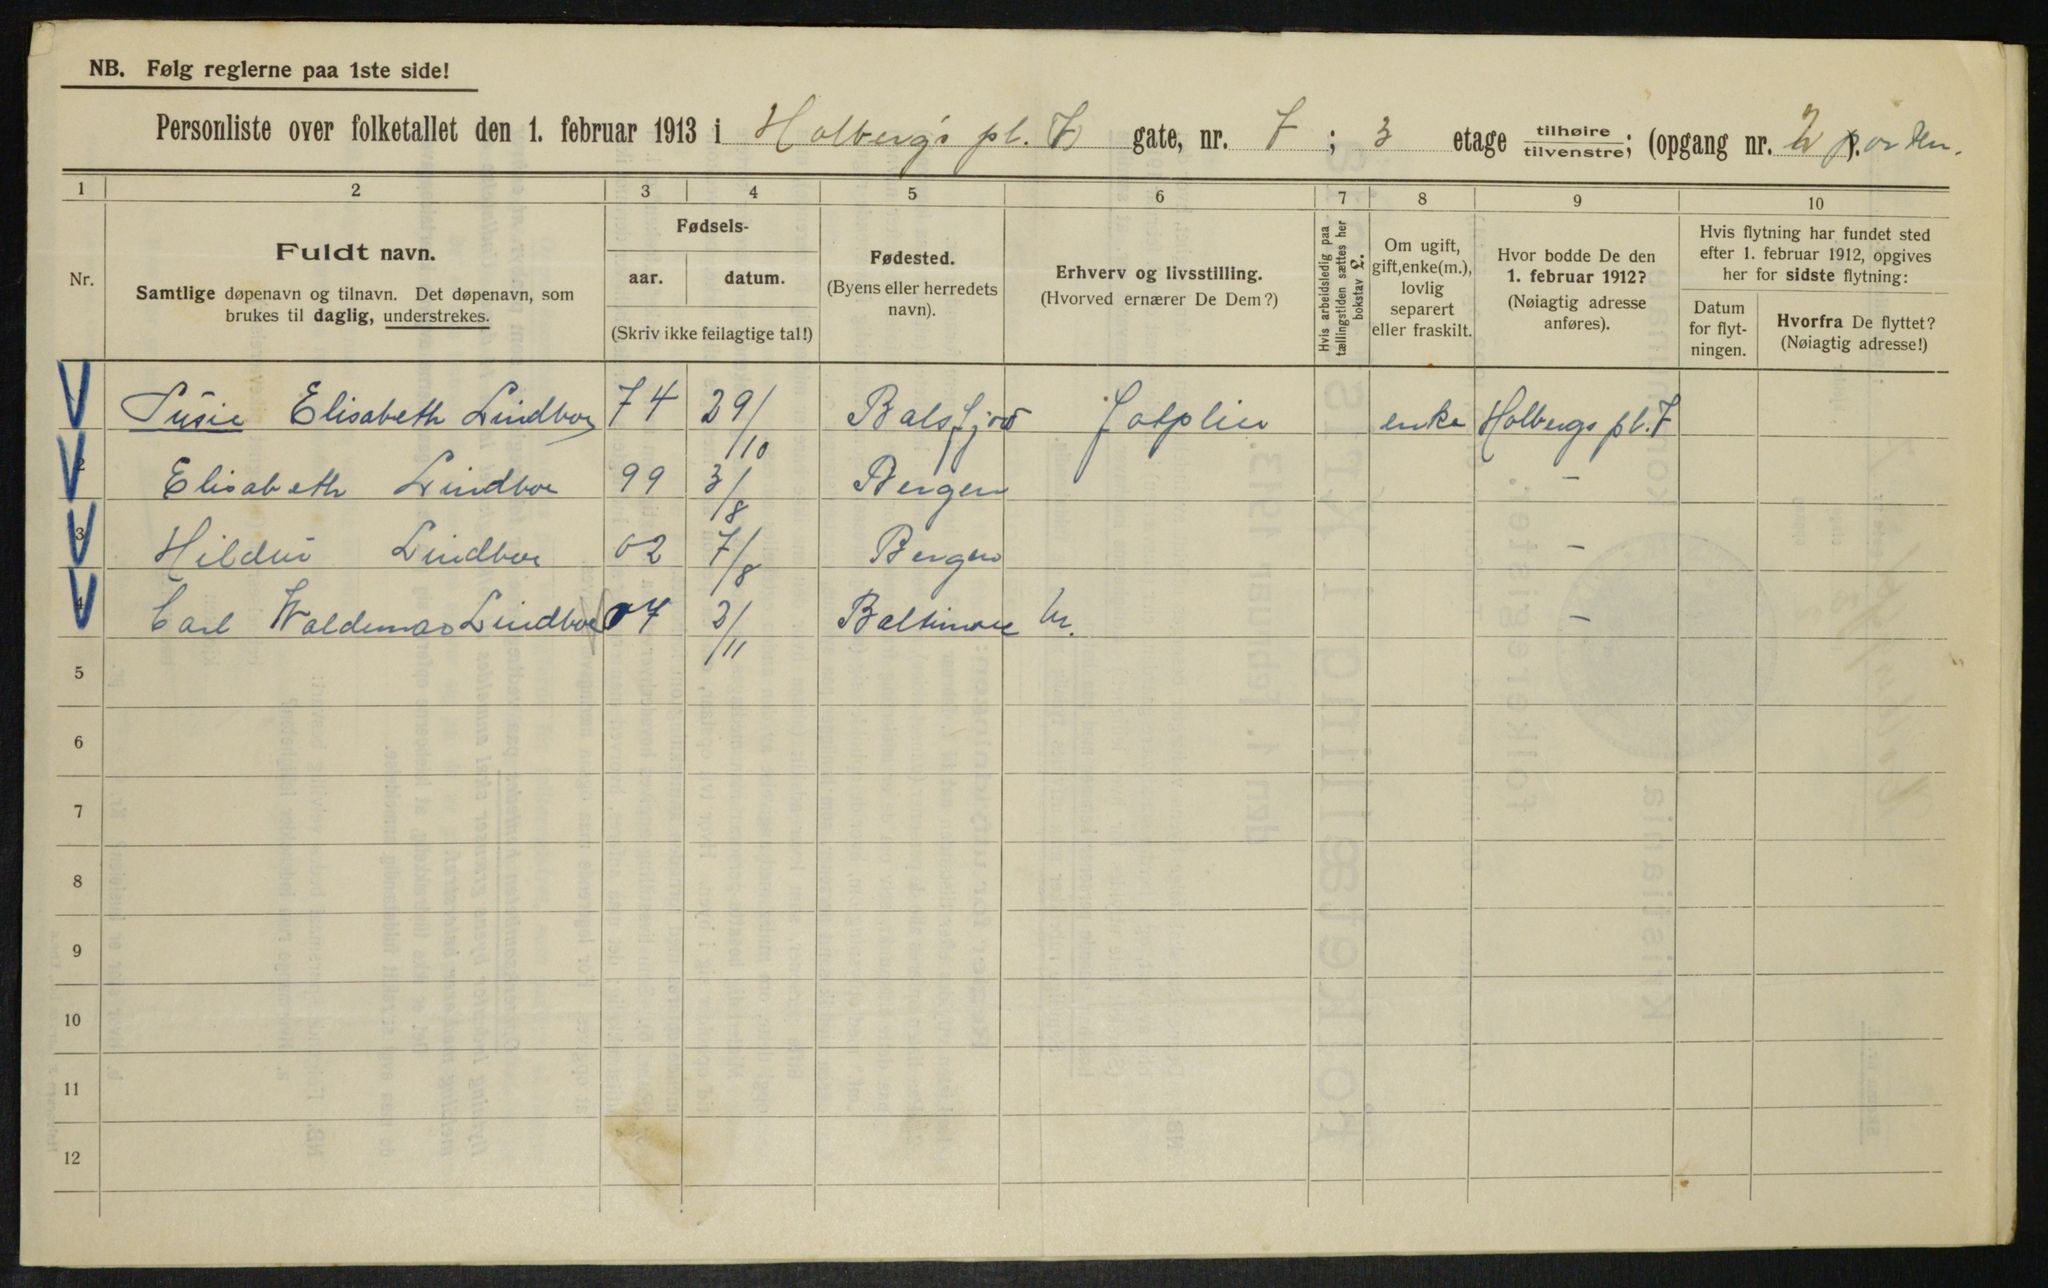 NB. Følg reglerne paa 1ste side!
Personliste over folketallet den 1. februar 1913 i Holbergs pl. 7 gate, nr. 7 ; 3 etage tilhøire / tilvenstre ; (opgang nr. 2 ). porten.
1 2 3 4 5 6 7 8 9 10
Nr.
Fuldt navn.
Samtlige døpenavn og tilnavn. Det døpenavn, som
brukes til daglig, understrekes.
Fødsels-
aar. datum.
(Skriv ikke feilagtige tal!)
Fødested.
(Byens eller herredets
navn).
Erhverv og livsstilling.
(Hvorved ernærer De Dem?)
Hvis arbeidsledig paa
tællingstiden sættes her
bokstav L.
Om ugift,
gift, enke(m.),
lovlig
separert
eller fraskilt.
Hvor bodde De den
1. februar 1912?
(Nøiagtig adresse
anføres).
Hvis flytning har fundet sted
efter 1. februar 1912, opgives
her for sidste flytning:
Datum
for flyt-
ningen.
Hvorfra De flyttet?
(Nøiagtig adresse!)
Susie Elisabeth Lindboe 74 29/10 Balsfjord enke Holbergs pl. 7
2 Elisabeth Lindboe 99 3/8 Bergen -
3 Hildur Lindboe 02 7/8 Bergen -
4 Carl Waldemar Lindboe 07 2/11 Baltimore -
5
6
7
8
9
10
11
12